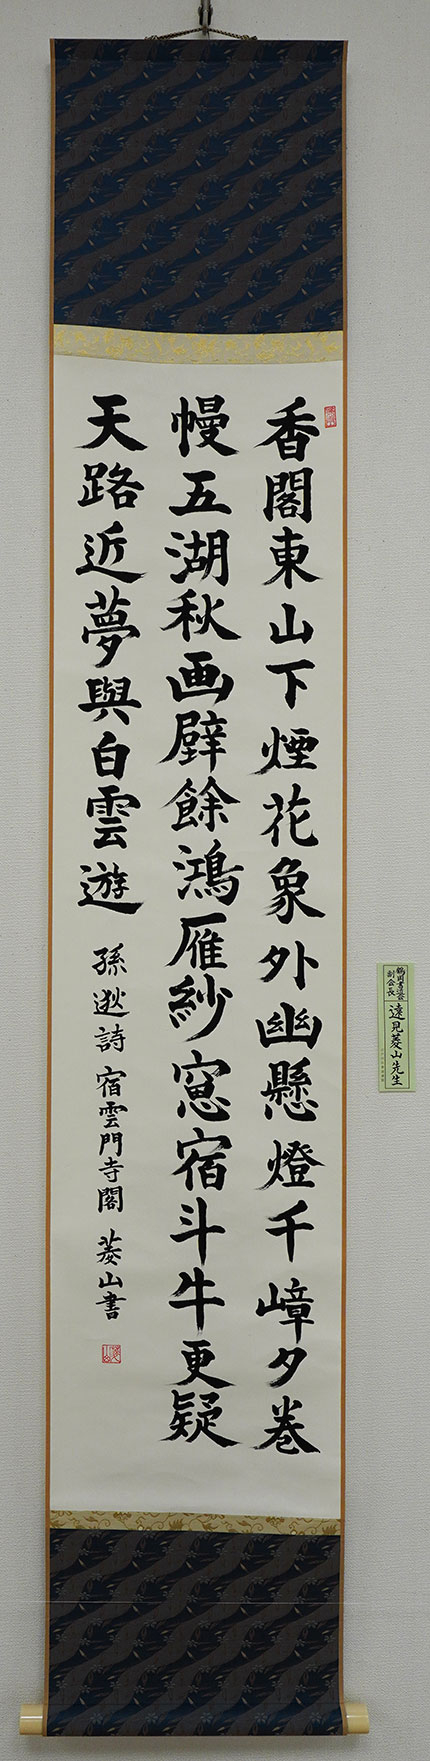 香閣東山下煙花象外幽懸燈千嶂夕巻
幔五湖秋画壁餘鴻雁紗窓宿斗牛更疑
天路近夢與白雲遊 孫逖詩 宿雲門寺閣 菱山書
鶴岡書道会
副会長
遠見菱山先生